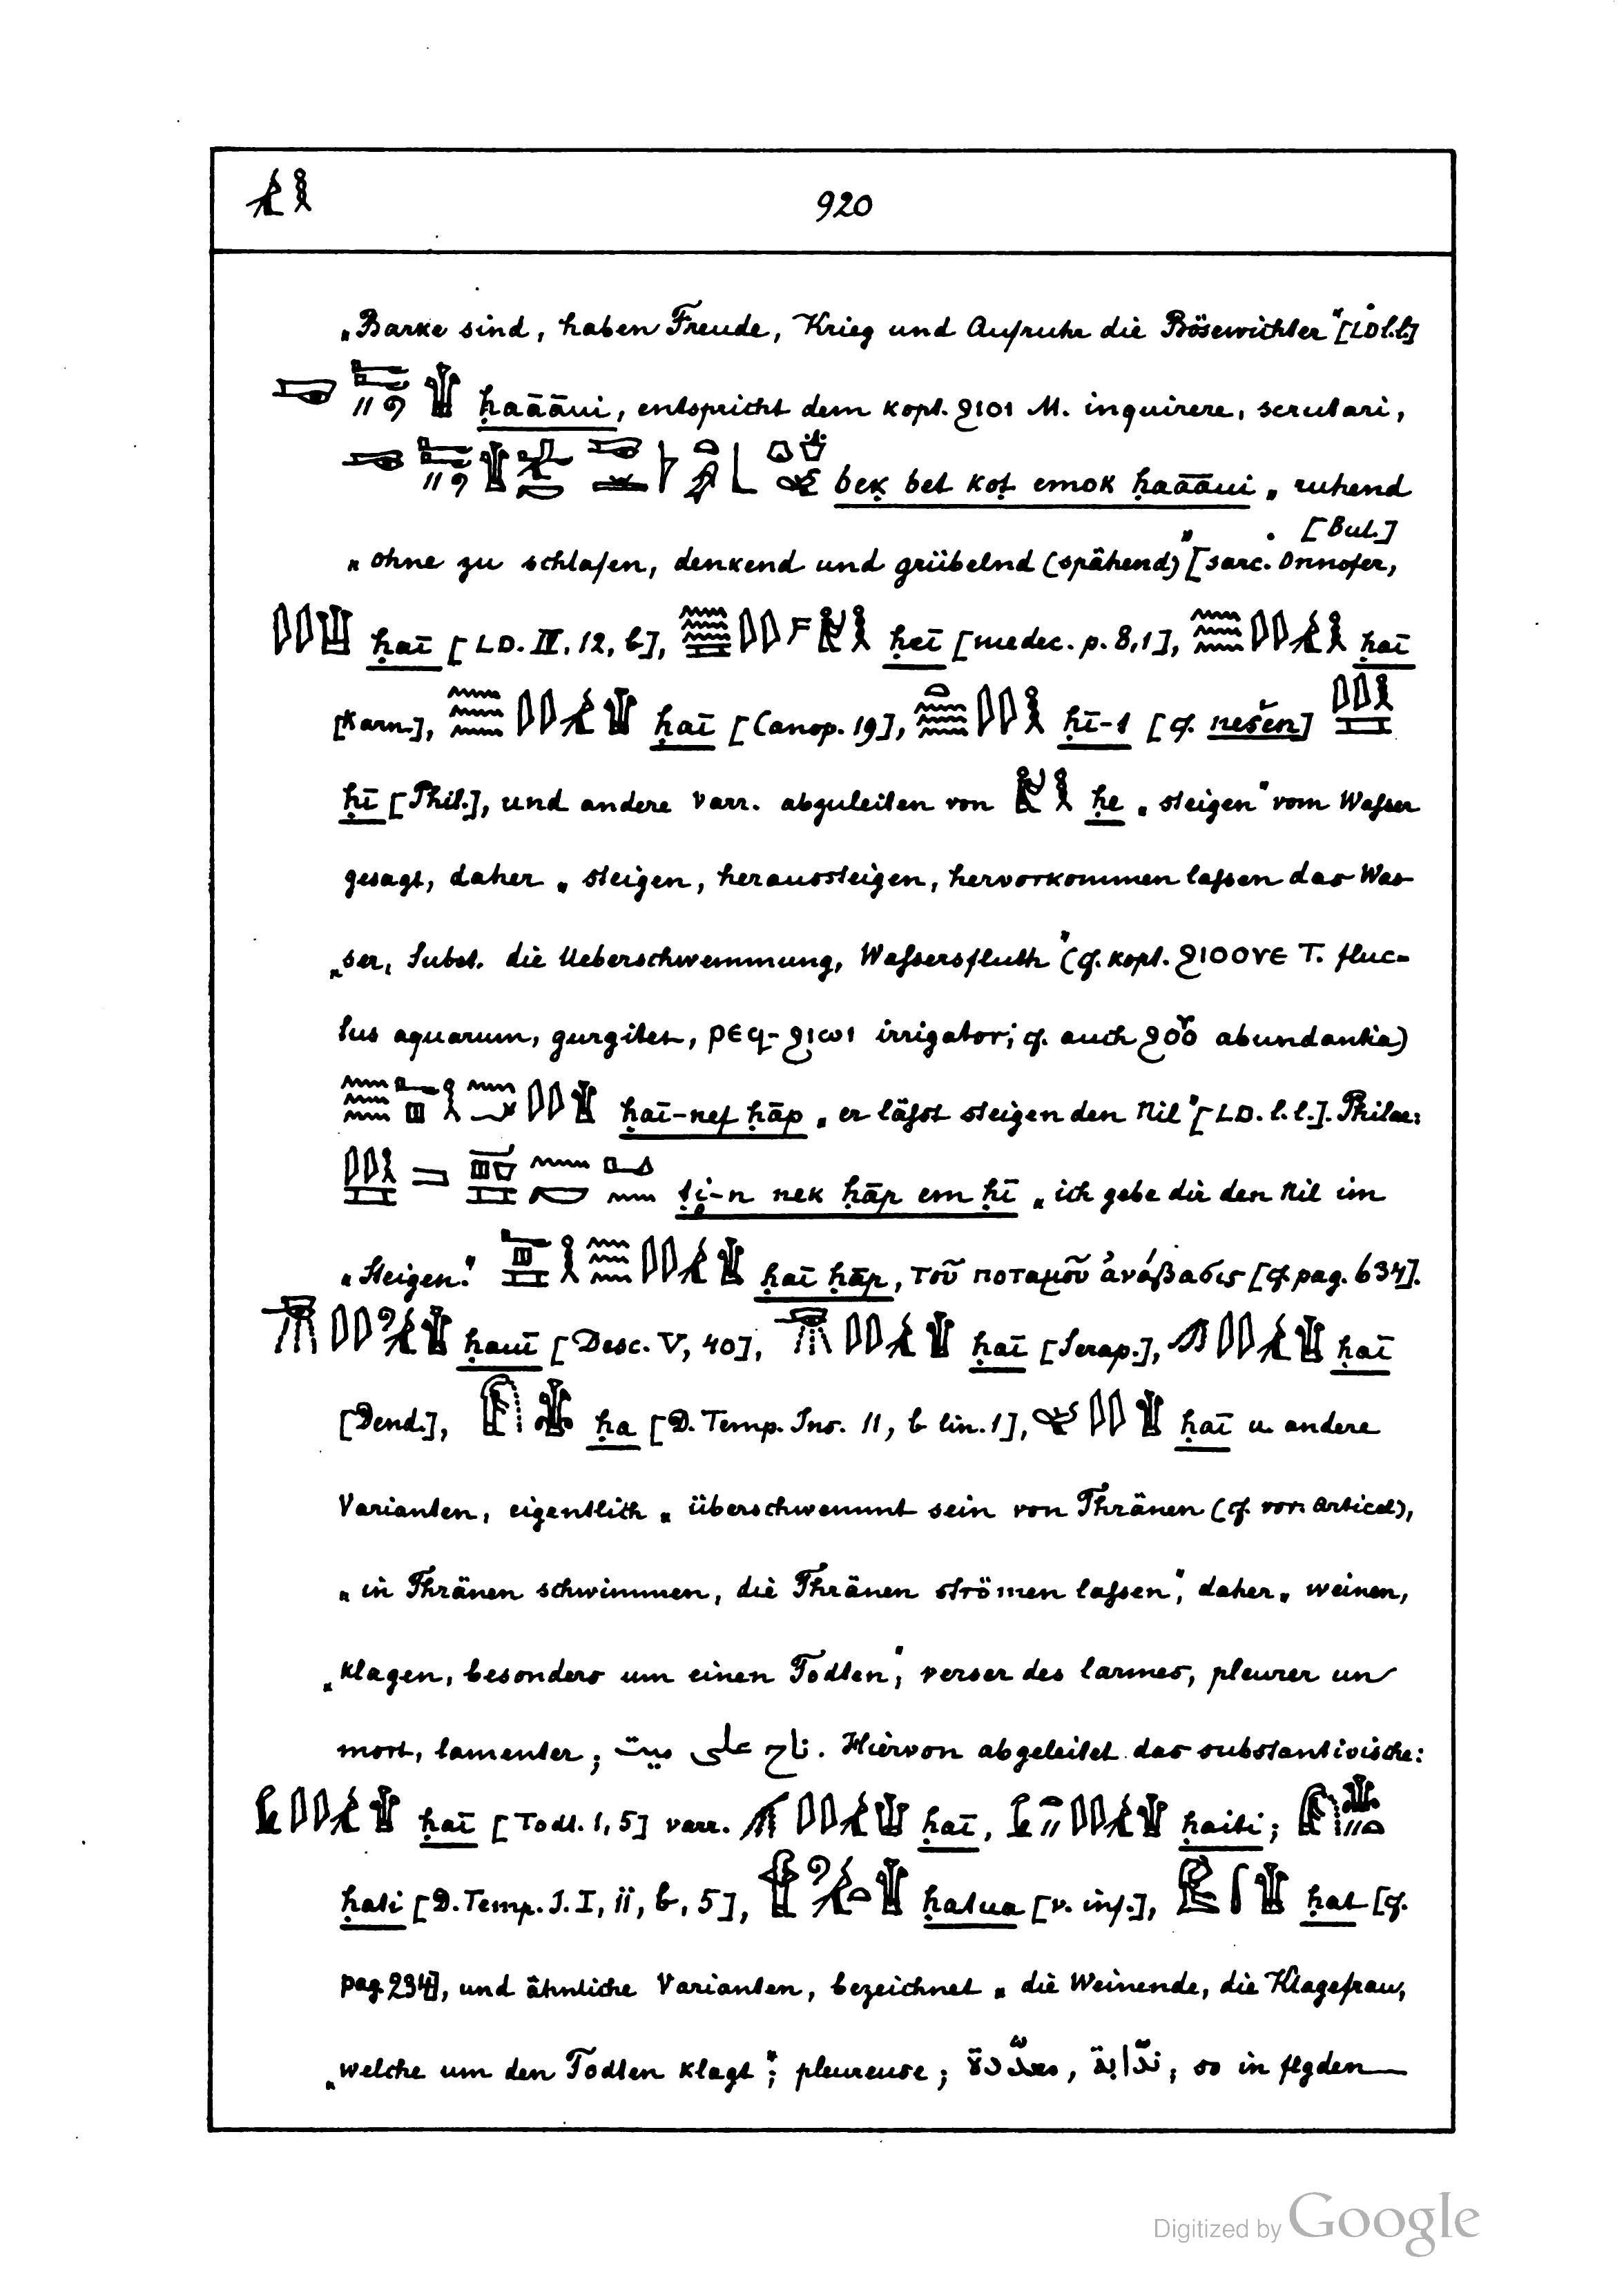 920
„Barke sind, haben Freude, Krieg und Aufruhr die Bösewichter“ [LD l.l.]
ḥaāāui, entspricht dem kopt. ϩιοι M. inquirere, scrutari,
beḳ bet koṭ emok ḥaāāui „ruhend
„ohne zu schlafen, denkend und grübelnd (spähend)“ [sarc. Onnofer,
[Bul.]
ḥaī [LD. IV, 12, b], ḥeī [medec. p. 8,1], ḥaī
[Karn.], ḥaī [Canop. 19], ḥī-t [cf. nešen]
ḥī [Phil.], und andere Varr. abzuleiten von ḥe „steigen“ vom Wasser
gesagt, daher „steigen, heraussteigen, hervorkommen lassen das Was-
„ser, Subst. die Ueberschwemmung, Wassersfluth“ (cf. kopt. ϩιοογε T. fluc-
tus aquarum, gurgites, ρεϥ-ϩιωι irrigator; cf. auch abundantia)
ḥaī-nef ḥāp „er läßt steigen den Nil“ [LD. l.l.]. Philae:
nek ḥāp em ḥī „ich gebe dir den Nil im
„Steigen.“ ḥaī ḥāp, τοῦ ποταμοῦ ἀνάβασις [cf. pag. 634].
ḥauī [Desc. V, 40], ḥaī [Serap.], ḥaī
[Dend.], ḥa [D. Temp. Ins. 11, b lin. 1], ḥaī u. andere
Varianten, eigentlich „überschwemmt sein von Thränen (cf. vor. Artikel),
„in Thränen schwimmen, die Thränen strömen lassen“, daher „weinen,
„klagen, besonders um einen Todten“, verser des larmes, pleurer un
mort, lamenter; ناح على ميت. Hiervon abgeleitet das substantivische:
ḥaī [Todt. 1, 5] varr. ḥaī, ḥaiti;
ḥati [D. Temp. J. I, 11, b, 5], ḥatua [v. inf.], ḥat [cf.
pag. 234], und ähnliche Varianten, bezeichnet „die Weinende, die Klagefrau,
„welche um den Todten klagt“; pleureuse; معدّدة, ندّابة; so in flgden
Digitized by Google